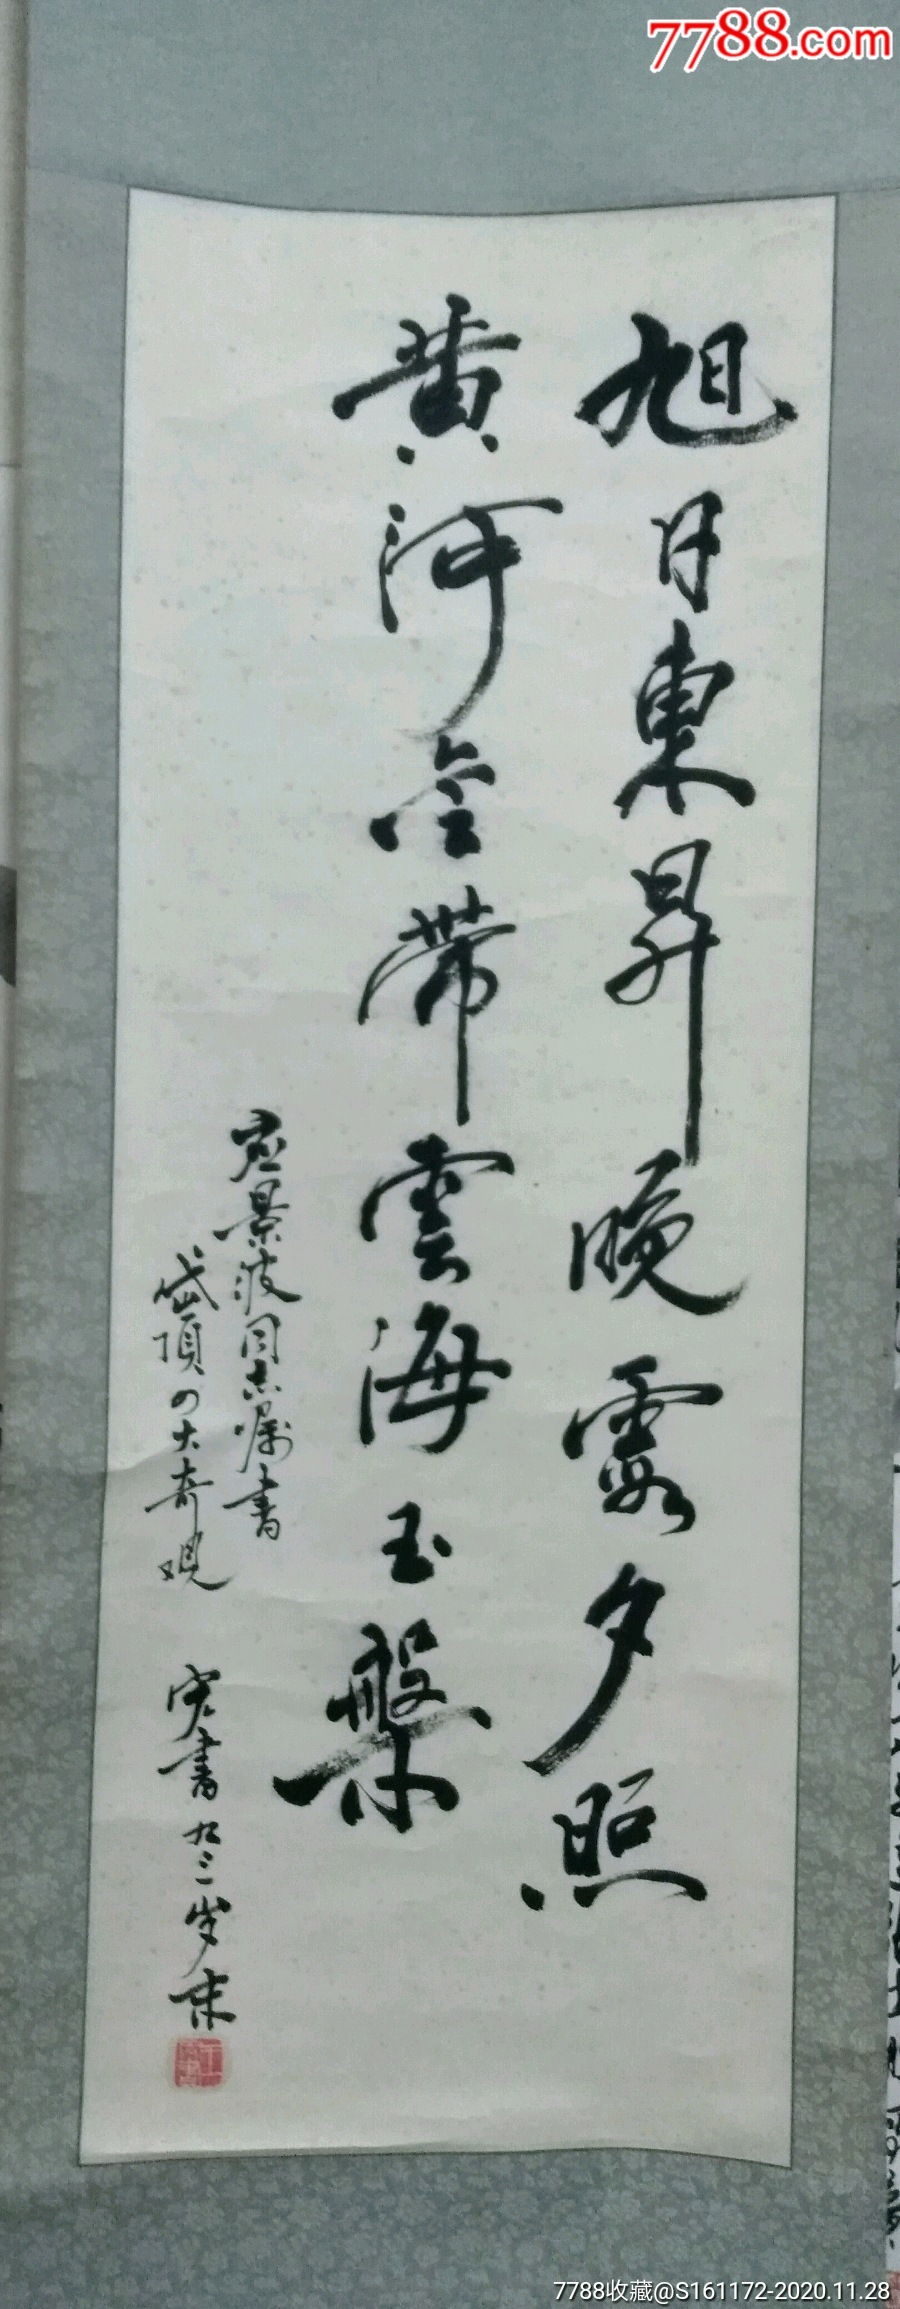 7788.com
旭日東昇晚霞夕照
黄河金带雲海玉槃
应景波同志嘱书
岱顶四大奇观
宪书九三岁末
7788收藏@S161172-2020.11.28